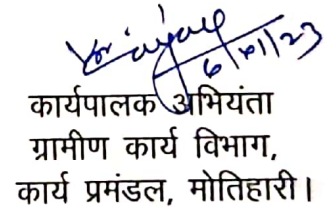 6/11/23
कार्यपालक अभियंता
ग्रामीण कार्य विभाग,
कार्य प्रमंडल, मोतिहारी।